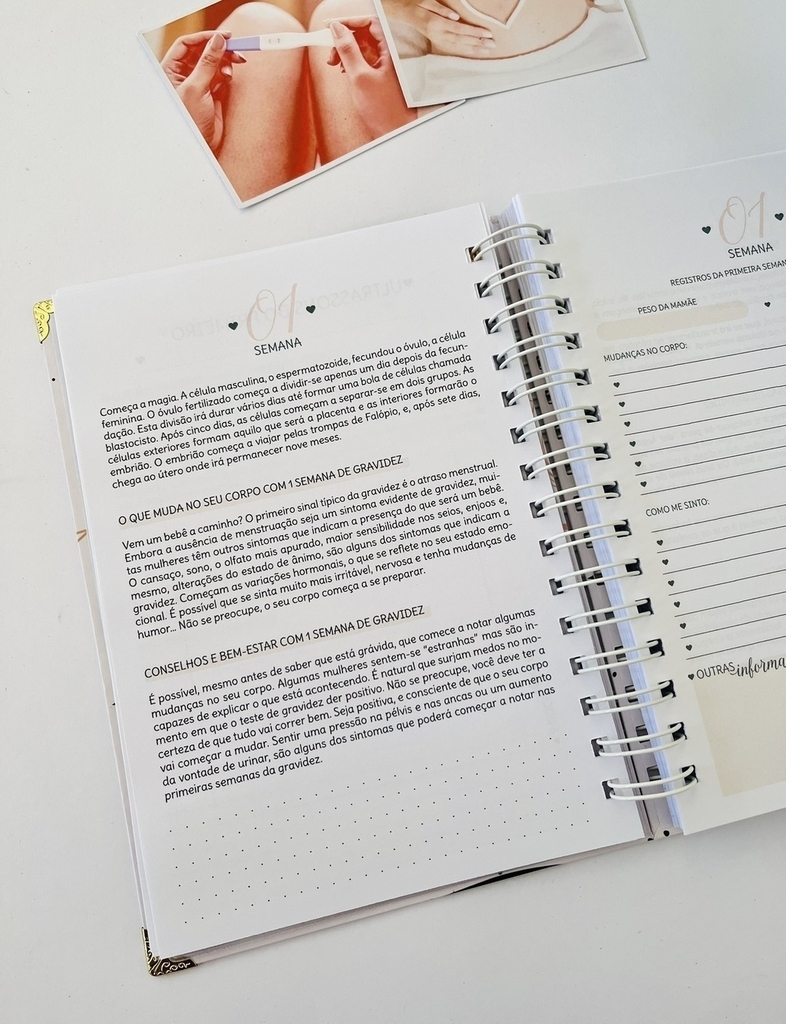 01
SEMANA
Começa a magia. A célula masculina, o espermatozoide, fecundou o óvulo, a célula
feminina. O óvulo fertilizado começa a dividir-se apenas um dia depois da fecun-
dação. Esta divisão irá durar vários dias até formar uma bola de células chamada
blastocisto. Após cinco dias, as células começam a separar-se em dois grupos. As
células exteriores formam aquilo que será a placenta e as interiores formarão o
embrião. O embrião começa a viajar pelas trompas de Falópio, e, após sete dias,
chega ao útero onde irá permanecer nove meses.
O QUE MUDA NO SEU CORPO COM 1 SEMANA DE GRAVIDEZ
Vem um bebê a caminho? O primeiro sinal típico da gravidez é o atraso menstrual.
Embora a ausência de menstruação seja um sintoma evidente de gravidez, mui-
tas mulheres têm outros sintomas que indicam a presença do que será um bebê.
O cansaço, sono, o olfato mais apurado, maior sensibilidade nos seios, enjoos e,
mesmo, alterações do estado de ânimo, são alguns dos sintomas que indicam a
gravidez. Começam as variações hormonais, o que se reflete no seu estado emo-
cional. É possível que se sinta muito mais irritável, nervosa e tenha mudanças de
humor... Não se preocupe, o seu corpo começa a se preparar.
CONSELHOS E BEM-ESTAR COM 1 SEMANA DE GRAVIDEZ
É possível, mesmo antes de saber que está grávida, que comece a notar algumas
mudanças no seu corpo. Algumas mulheres sentem-se “estranhas” mas são in-
capazes de explicar o que está acontecendo. É natural que surjam medos no mo-
mento em que o teste de gravidez der positivo. Não se preocupe, você deve ter a
certeza de que tudo vai correr bem. Seja positiva, e consciente de que o seu corpo
vai começar a mudar. Sentir uma pressão na pélvis e nas ancas ou um aumento
da vontade de urinar, são alguns dos sintomas que poderá começar a notar nas
primeiras semanas da gravidez.
01
SEMANA
REGISTROS DA PRIMEIRA SEMAN
PESO DA MAMÃE
MUDANÇAS NO CORPO:
COMO ME SINTO:
OUTRAS informa